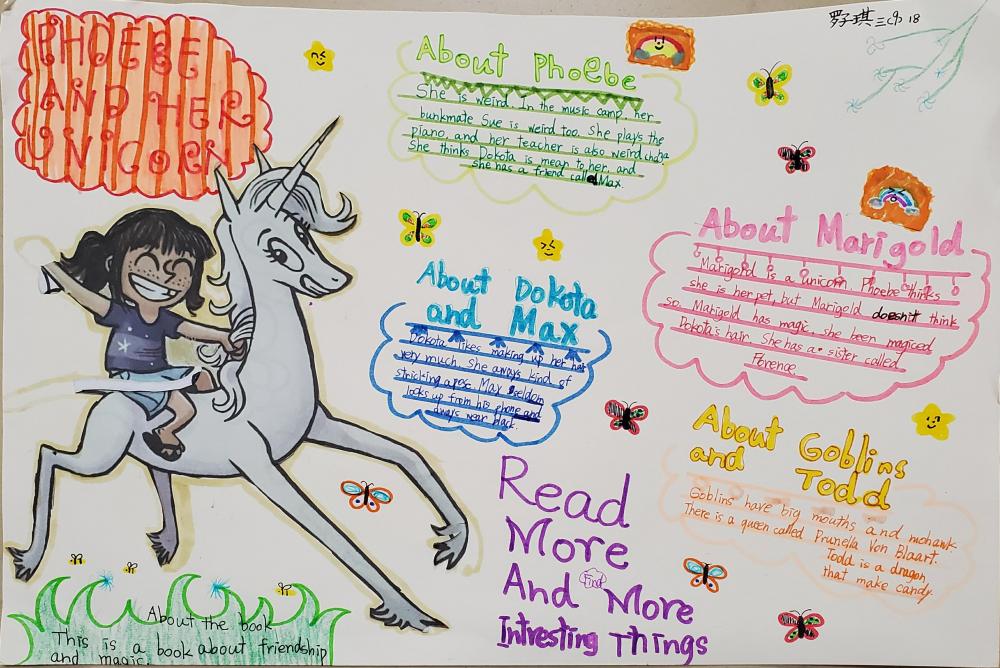 PHOEBE
AND HER
UNICORN
罗子琪 三(9) 18
About Phoebe
She is weird. In the music camp, her
bunkmate Sue is weird too. She plays the
piano, and her teacher is also weird
She thinks Dokota is mean to her, and
she has a friend call Max.
About Marigold
Marigorld is a unicorn. Phoebe thinks
she is her pet, but Marigold doesn't think
so. Marigold has magic, she been magiced
Dokota's hair. She has a sister called
Florence
About Dokota
and Max
Dokota likes making up her hair
very much. She always kind of
stricking a pose. Max seldon
looks up from his phone and
always wear black.
About Goblins
and Todd
Goblins have big mouths and mohawk
There is a queen called Prunella Von Blaart.
Todd is a dragon
that make candy.
Read
More
And Find More
Intresting Things
About the book
This is a book about friendship
and magic.